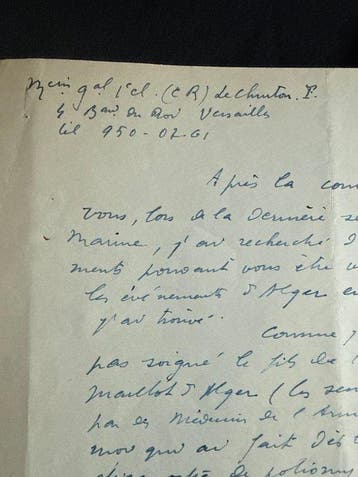 Mein gal 1e cl. (CR) de Chinton. P.
4 Bard du Roi Versailles
tél 950-02.61
Après la com
vous, lors de la dernière se
Marine, j'ai recherché d
ments pouvant vous être u
les événements d'Alger e
j'ai trouvé.
Comme j
pas soigné le fils de l
Maillot d'Alger (les seu
par des Médecins de l'Arm
moi qui ai fait des
de poliomy